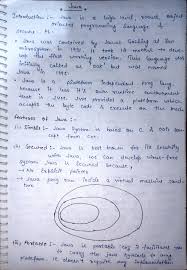 Java
Introduction :- Java is a high level, robust, object
oriented programming language &
secure.
Java was conceived by James Gosling at Sun
microsystem in 1991. It took 18 months to develop
the first working version. This language was
initially called as "oak" but was named
Java in 1995.
Java is a platform independent prog lang
because it has it's own runtime environment
that is Java. Jvm provides a platform which
accepts the byte code & execute on the machine
Features of Java :-
(i) Simple :- Java syntax is based on C &
(ii) Secured :- Java is best known for its security
with Java, we can develop virus-free
system. Java is secured because,
→ No Explicit pointer
→ Java prog run inside a virtual machine
(iii) Portable :- Java is portable
to carry the Java bytecode to any
platform. It doesn't require any implementation.